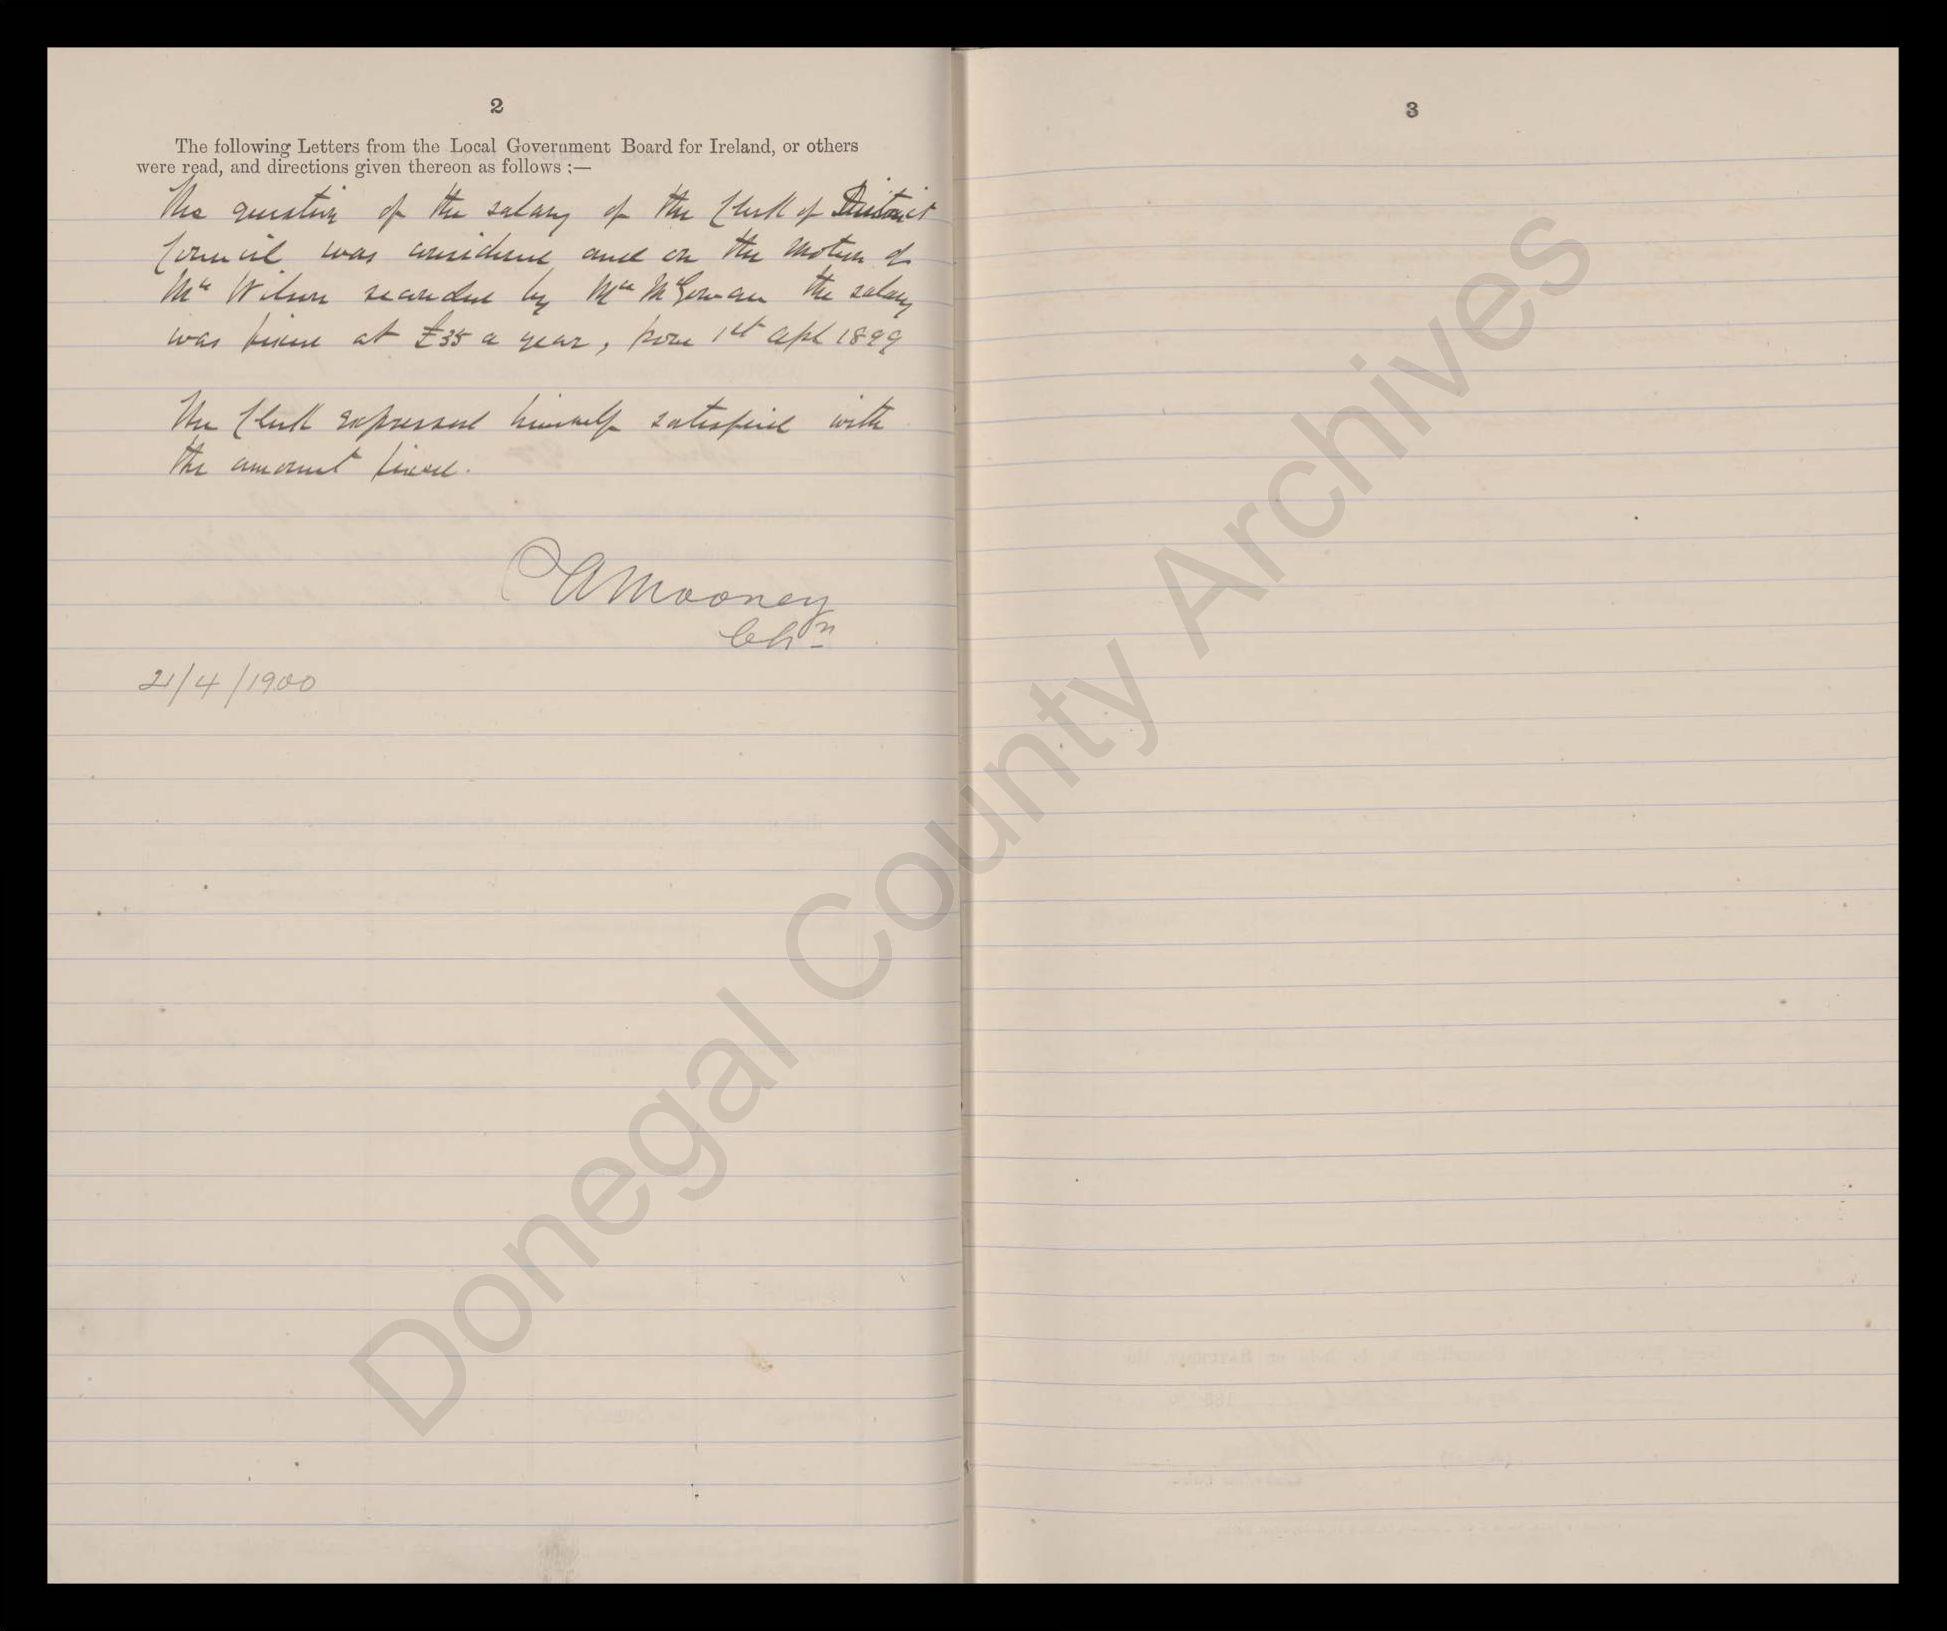 2
The following Letters from the Local Government Board for Ireland, or others
were read, and directions given thereon as follows :—
The question of the salary of the Clerk of District
Council was considered and on the motion of
Mr Wilson seconded by Mr McGowan the salary
was fixed at £35 a year, from 1st Apl 1899
The Clerk expressed himself satisfied with
the amount fixed.
A Mooney
Chn
21/4/1900
3
Donegal County Archives